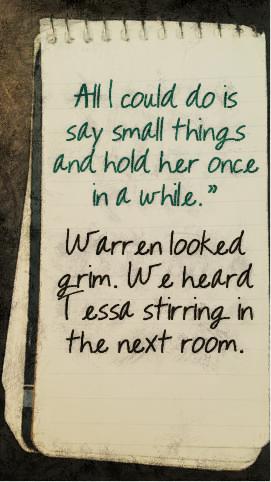 All I could do is
say small things
and hold her once
in a while."
Warren looked
grim. We heard
Tessa stirring in
the next room.